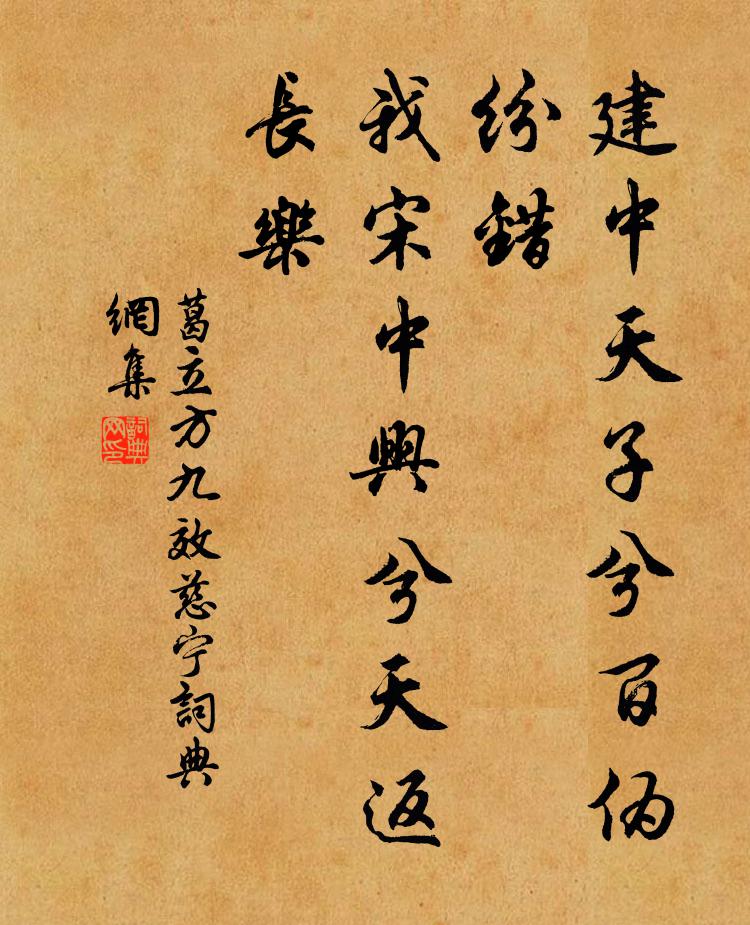 建中天子兮百伪
纷錯
我宋中興兮天返
長樂
葛立方九效慈宁詞典
網集
詞典
网印